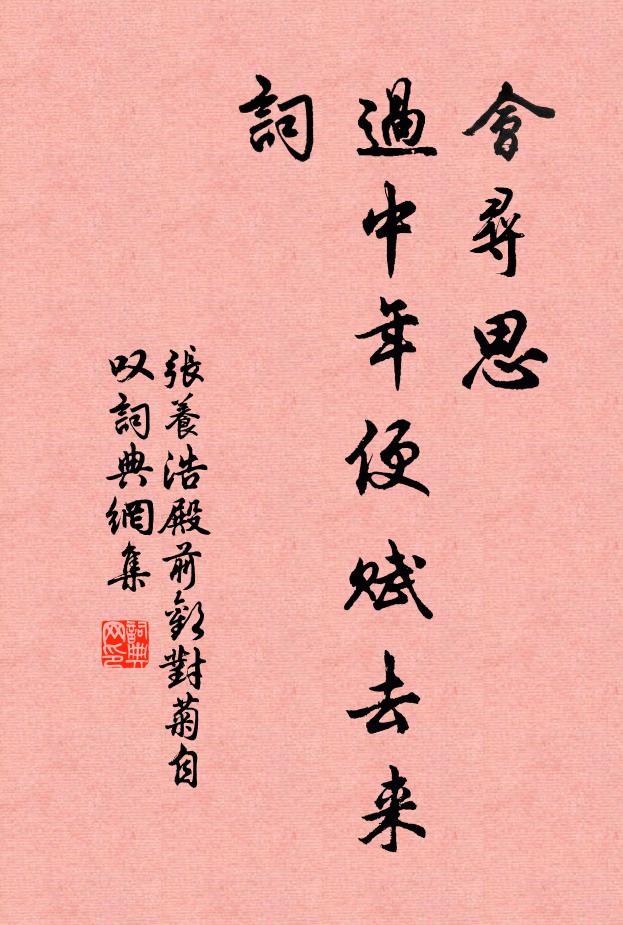 會尋思
過中年便賦去来
詞
張養浩殿前歡對菊自
叹詞典網集
詞典
网印